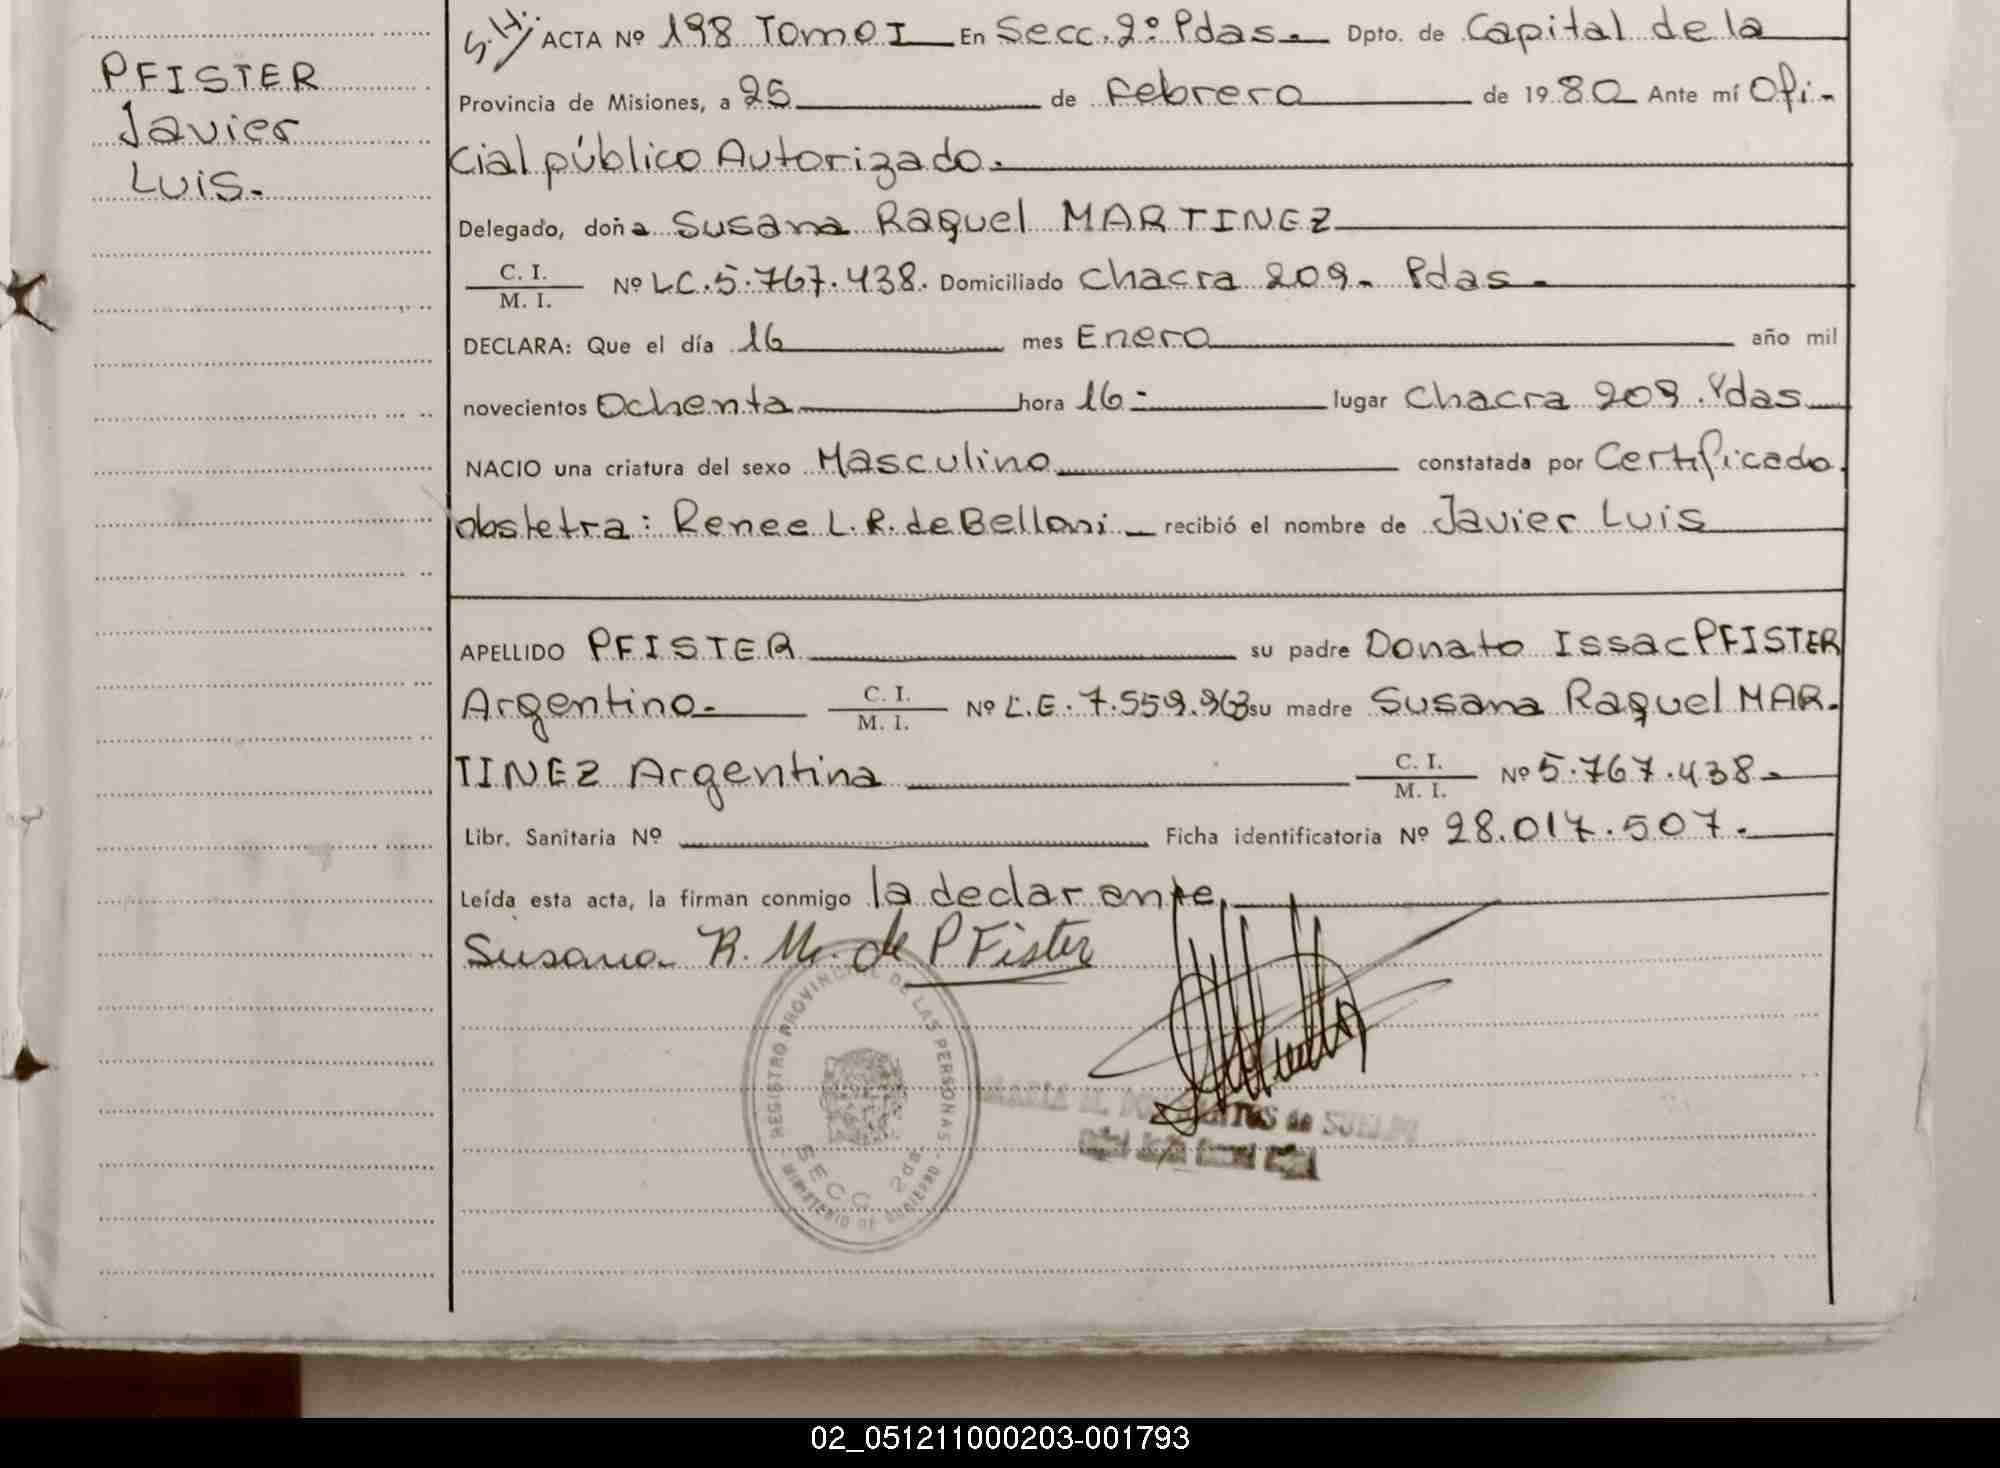 PFISTER
Javier
Luis.
S.H. ACTA Nº 198 Tomo I En Secc. 2º Pdas. Dpto. de Capital de la
Provincia de Misiones, a 25 de Febrero de 1980 Ante mí Ofi-
cial público Autorizado.
Delegado, doña Susana Raquel MARTINEZ
C. I.
M. I. Nº LC. 5.767.438. Domiciliado Chacra 209. Pdas.
DECLARA: Que el día 16 mes Enero año mil
novecientos Ochenta hora 16- lugar Chacra 209. Pdas
NACIO una criatura del sexo Masculino constatada por Certificado
obstetra: Renee L. R. de Belloni recibió el nombre de Javier Luis
APELLIDO PFISTER su padre Donato Issac PFISTER
Argentino. C. I.
M. I. Nº L.E. 7.559.963 su madre Susana Raquel MAR-
TINEZ Argentina C. I.
M. I. Nº 5.767.438.
Libr. Sanitaria Nº Ficha identificatoria Nº 28.017.507.
Leída esta acta, la firman conmigo la declarante.
Susana R. M. de PFister
REGISTRO PROVINCIAL DE LAS PERSONAS
SECC 2da
MINISTERIO DE GOBIERNO
de
02_051211000203-001793